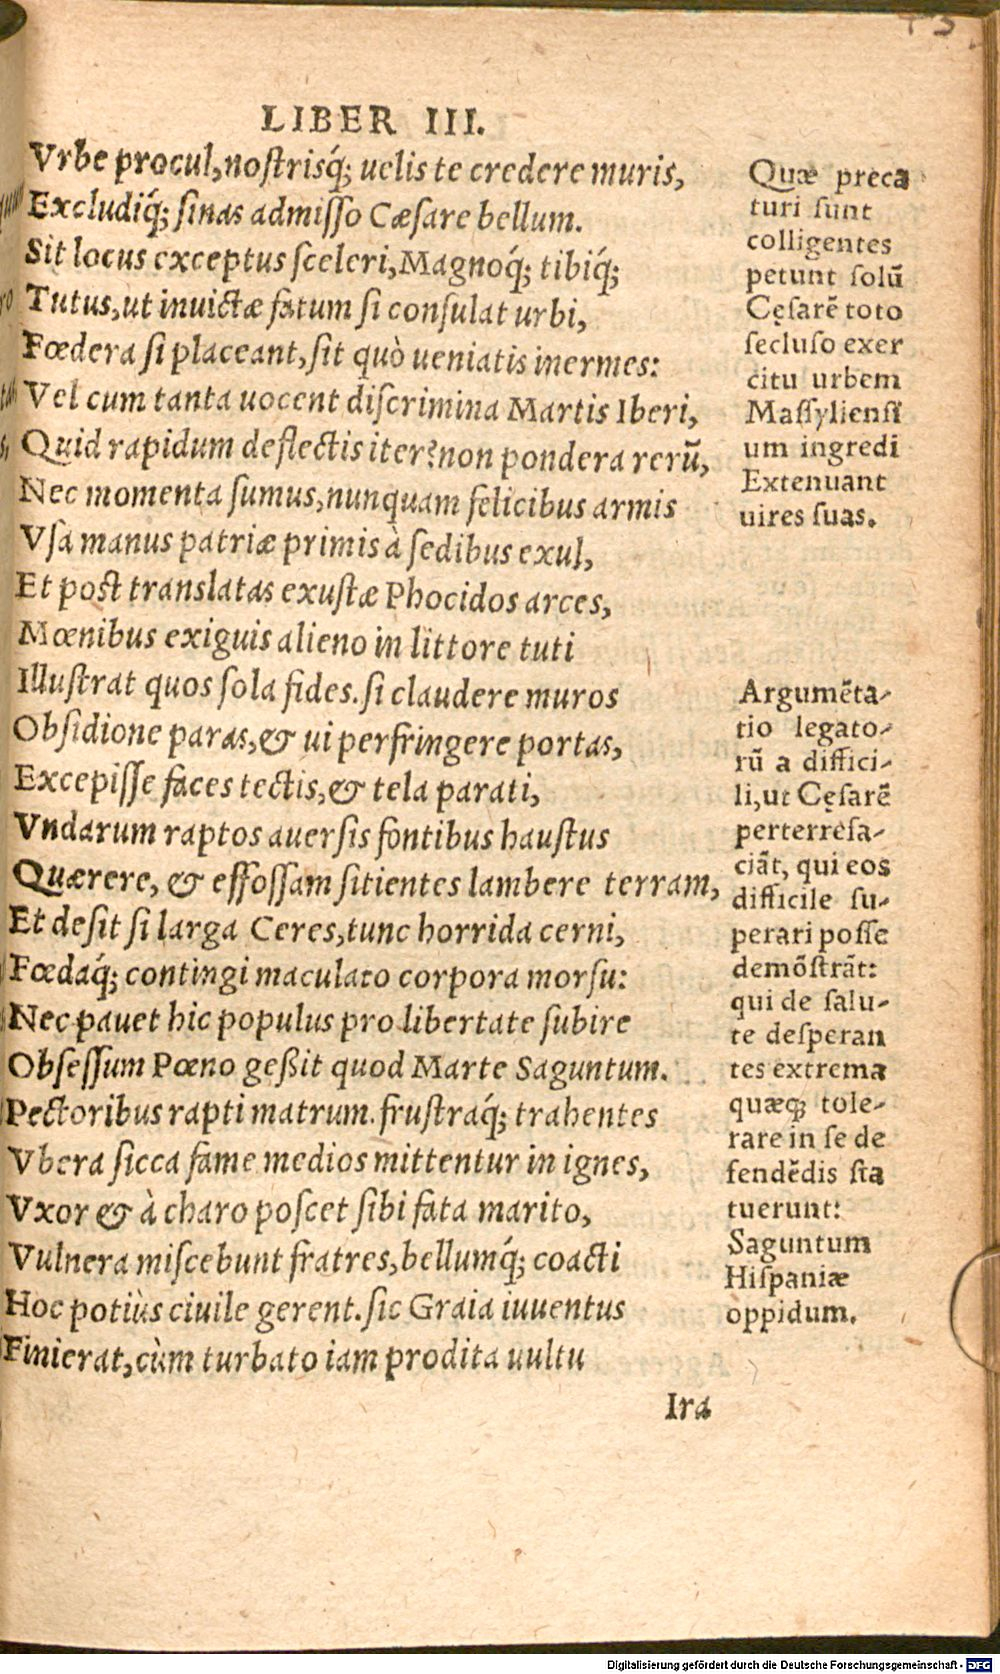 LIBER III.
Vrbe procul, nostrisq́; uelis te credere muris,
Excludiq́; sinas admisso Cæsare bellum.
Sit locus exceptus sceleri, Magnoq́; tibiq́;
Tutus, ut inuictæ fatum si consulat urbi,
Fœdera si placeant, sit quò ueniatis inermes:
Vel cum tanta uocent discrimina Martis Iberi,
Quid rapidum deflectis iter? non pondera rerũ,
Nec momenta sumus, nunquam felicibus armis
Vsa manus patriæ primis à sedibus exul,
Et post translatas exustæ Phocidos arces,
Mœnibus exiguis alieno in littore tuti
Illustrat quos sola fides. si claudere muros
Obsidione paras, & ui perfringere portas,
Excepisse faces tectis, & tela parati,
Vndarum raptos auersis fontibus haustus
Quærere, & effossam sitientes lambere terram,
Et desit si larga Ceres, tunc horrida cerni,
Fœdaq́; contingi maculato corpora morsu:
Nec pauet hic populus pro libertate subire
Obsessum Pœno geßit quod Marte Saguntum.
Pectoribus rapti matrum. frustraq́; trahentes
Vbera sicca fame medios mittentur in ignes,
Vxor & à charo poscet sibi fata marito,
Vulnera miscebunt fratres, bellumq́; coacti
Hoc potiùs ciuile gerent. sic Graia iuuentus
Finierat, cùm turbato iam prodita uultu
Ira
Quæ preca
turi sunt
colligentes
petunt solũ
Cęsarẽ toto
secluso exer
citu urbem
Massyliensi
um ingredi
Extenuant
uires suas.
Argumẽta-
tio legato-
rũ a diffici-
li, ut Cęsarẽ
perterrefa-
ciãt, qui eos
difficile su-
perari posse
demõstrãt:
qui de salu-
te desperan
tes extrema
quæq; tole-
rare in se de
fendẽdis sta
tuerunt:
Saguntum
Hispaniæ
oppidum.
Digitalisierung gefördert durch die Deutsche Forschungsgemeinschaft - DFG